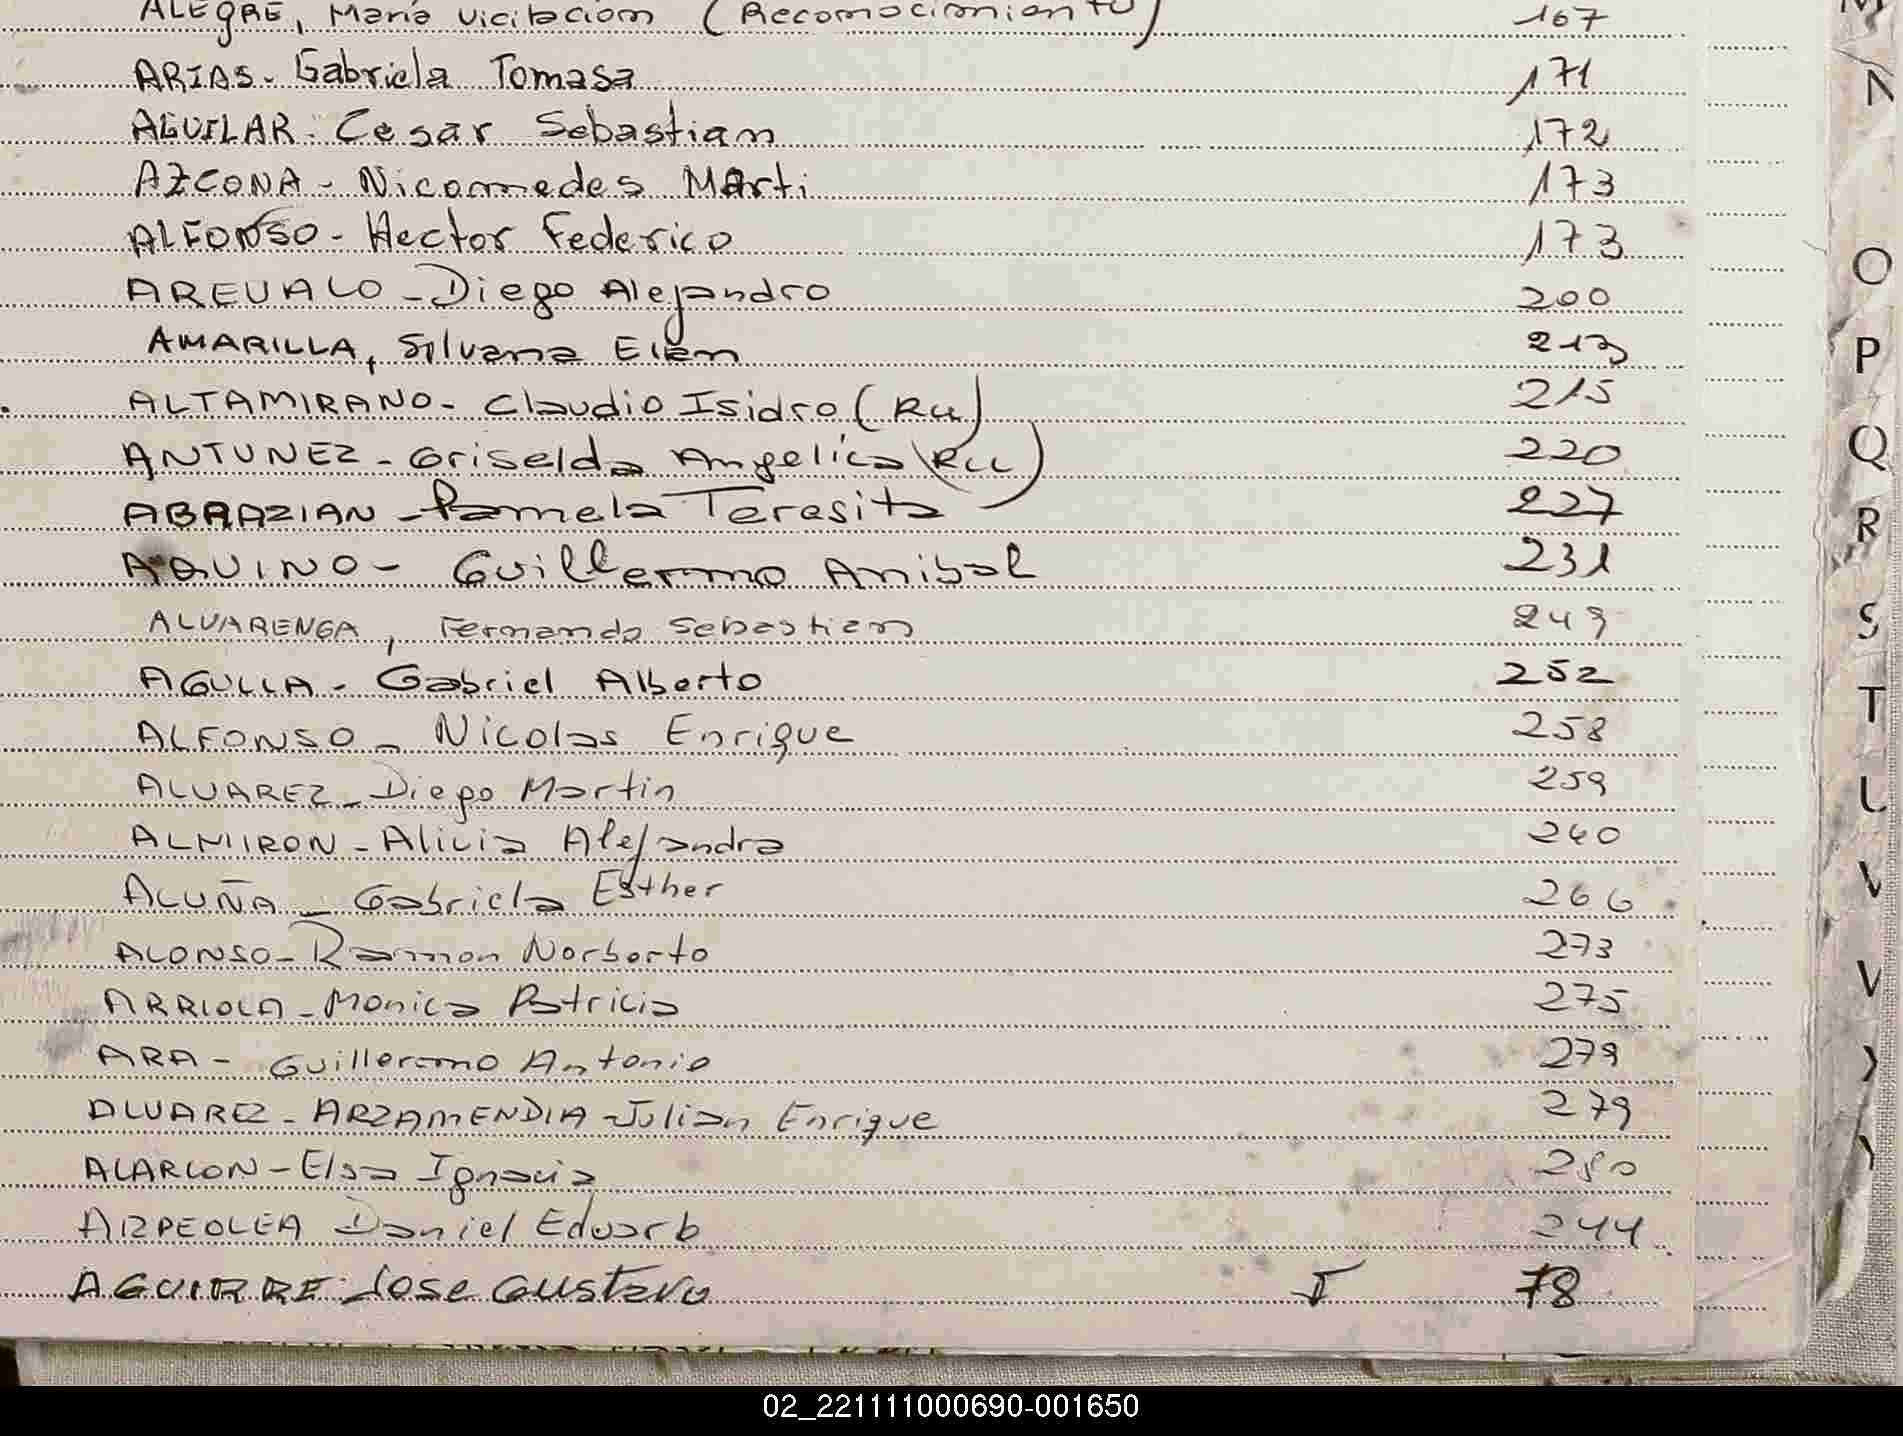 ALEGRE, Maria Vicitacion (Reconocimiento) 167
ARIAS - Gabriela Tomasa 171
AGUILAR - Cesar Sebastian 172
AZCONA - Nicomedes Marti 173
ALFONSO - Hector Federico 173
AREVALO - Diego Alejandro 200
AMARILLA, Silvana Elen 213
ALTAMIRANO - Claudio Isidro (RU) 215
ANTUNEZ - Griselda Angelica (RU) 220
ABRAZIAN - Pamela Teresita 227
AQUINO - Guillermo Anibal 231
ALVARENGA, Fernando Sebastien 249
AGULLA - Gabriel Alberto 252
ALFONSO - Nicolas Enrique 258
ALVAREZ - Diego Martin 259
ALMIRON - Alicia Alejandra 260
ACUÑA - Gabriela Esther 266
ALONSO - Ramon Norberto 273
ARRIOLA - Monica Patricia 275
ARA - Guillermo Antonio 279
ALVAREZ - ARZAMENDIA - Julian Enrique 279
ALARCON - Elsa Ignacia 280
Daniel Eduardo 244
AGUIRRE Jose Gustavo I 78
M
N
O
P
Q
R
S
T
U
V
Y
02_221111000690-001650